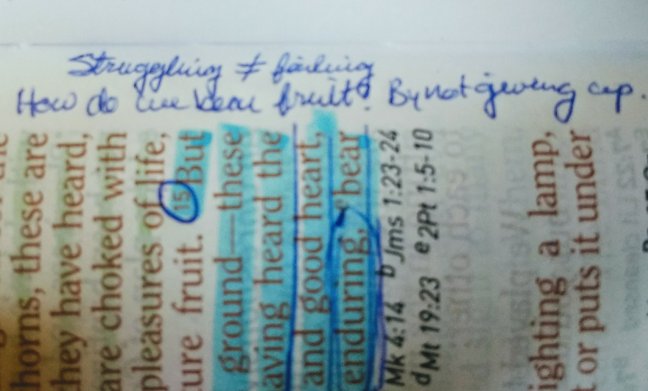 Struggling ≠ failing
How do we bear fruit? By not giving up.
horns, these are
they have heard,
are choked with
pleasures of life,
ure fruit. 15 But
ground—these
aving heard the
and good heart,
enduring, bear
Mk 4:14 b Jms 1:23-24
d Mt 19:23 e 2Pt 1:5-10
ighting a lamp,
or puts it under